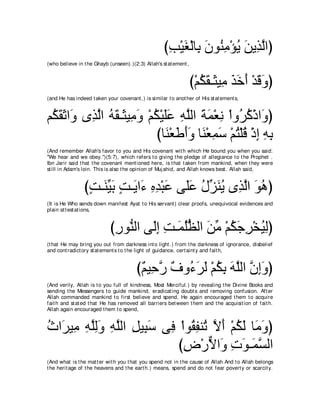 (الَّذِينَ يُؤْمِنُونَ بِالْغَيْبِ)
(who believe in the Ghayb (unseen).)(2:3) Allah's statement,
(وَقَدْ أَخَذَ مِيثَـقَكُمْ)
(and He has indeed taken your covenant,) is similar to another of His statements,
(وَاذْكُرُواْ نِعْمَةَ اللَّهِ عَلَيْكُمْ وَمِيثَـقَهُ الَّذِى وَاثَقَكُم
بِهِ إِذْ قُلْتُمْ سَمِعْنَا وَأَطَعْنَا)
(And remember Allah's favor to you and His covenant with which He bound you when you said:
"We hear and we obey.")(5:7), which refers to giving the pledge of allegiance to the Prophet .
Ibn Jarir said that the covenant mentioned here, is that taken from mankind, when they were
still in Adam's loin. This is also the opinion of Mujahid, and Allah knows best. Allah said,
(هُوَ الَّذِى يُنَزِّلُ عَلَى عَبْدِهِ ءَايَـتٍ بَيِّنَـتٍ)
(It is He Who sends down manifest Ayat to His servant) clear proofs, unequivocal evidences and
plain attestations,
(لِيُخْرِجَكُمْ مِّنَ الظُّلُمَـتِ إِلَى النُّورِ)
(that He may bring you out from darkness into light.) from the darkness of ignorance, disbelief
and contradictory statements to the light of guidance, certainty and faith,
(وَإِنَّ اللَّهَ بِكُمْ لَرَءُوفٌ رَّحِيمٌ)
(And verily, Allah is to you full of kindness, Most Merciful.) by revealing the Divine Books and
sending the Messengers to guide mankind, eradicating doubts and removing confusion. After
Allah commanded mankind to first believe and spend, He again encouraged them to acquire
faith and stated that He has removed all barriers between them and the acquisition of faith.
Allah again encouraged them to spend,
(وَمَا لَكُمْ أَلاَّ تُنفِقُواْ فِى سَبِيلِ اللَّهِ وَلِلَّهِ مِيرَاثُ
السَّمَـوَتِ وَالاٌّرْضِ)
(And what is the matter with you that you spend not in the cause of Allah And to Allah belongs
the heritage of the heavens and the earth.) means, spend and do not fear poverty or scarcity.